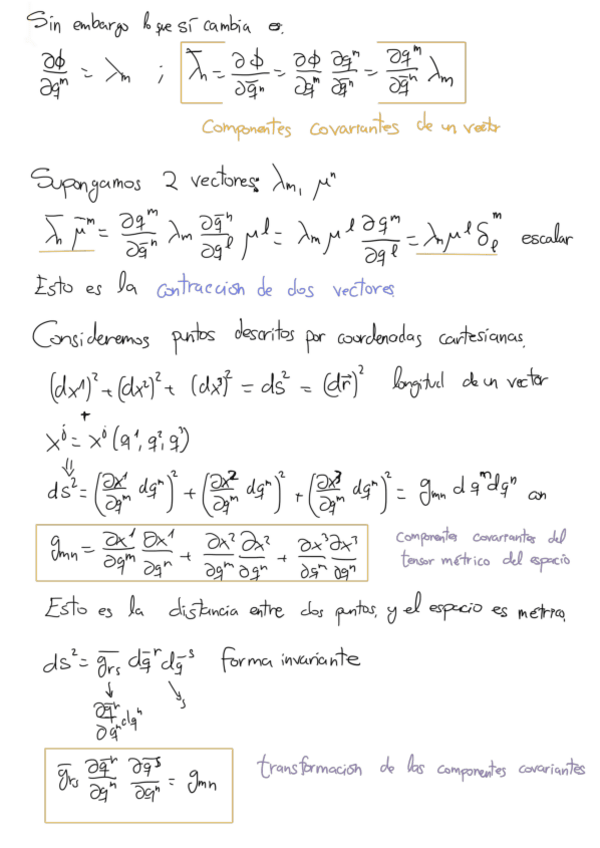 Sin embargo lo que sí cambia es:
∂ϕ/∂qᵐ = λₘ ; λ̄ₙ = ∂ϕ/∂q̄ⁿ = ∂ϕ/∂qᵐ ∂qᵐ/∂q̄ⁿ = ∂qᵐ/∂q̄ⁿ λₘ
Componentes covariantes de un vector
Supongamos 2 vectores: λₘ, μⁿ
λ̄ₙ μ̄ᵐ = ∂qᵐ/∂q̄ⁿ λₘ ∂q̄ⁿ/∂qˡ μˡ = λₘ μˡ ∂qᵐ/∂qˡ = λₙ μˡ δₗᵐ escalar
Esto es la contracción de dos vectores.
Consideremos puntos descritos por coordenadas cartesianas.
(dx¹)² + (dx²)² + (dx³)² = ds² = (dr⃗)² longitud de un vector
+
xʲ = xʲ(q¹, q², q³)
⇓
ds² = (∂x¹/∂qᵐ dqᵐ)² + (∂x²/∂qᵐ dqᵐ)² + (∂x³/∂qᵐ dqᵐ)² = gₘₙ dqᵐdqⁿ con
gₘₙ = ∂x¹/∂qᵐ ∂x¹/∂qⁿ + ∂x²/∂qᵐ ∂x²/∂qⁿ + ∂x³/∂qᵐ ∂x³/∂qⁿ
componentes covariantes del
tensor métrico del espacio
Esto es la distancia entre dos puntos, y el espacio es métrico.
ds² = ḡᵣₛ dq̄ʳ dq̄ˢ forma invariante
↓ ↘
∂q̄ʳ/∂qⁿ dqⁿ s
ḡᵣₛ ∂q̄ʳ/∂qⁿ ∂q̄ˢ/∂qⁿ = gₘₙ
transformación de las componentes covariantes